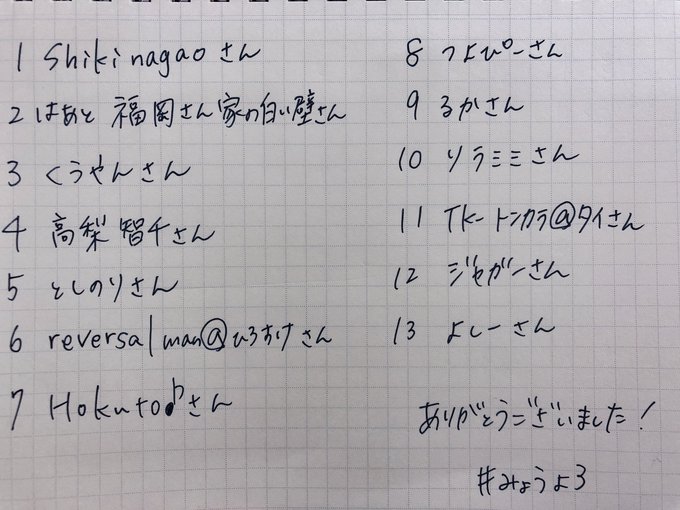 1 Shiki nagao さん
2 はあと 福岡さん家の白い壁さん
3 くうやんさん
4 高梨 智千さん
5 としのりさん
6 reversal man@ひろすけさん
7 Hokuto♪さん
8 つよぴーさん
9 るかさん
10 ソラミミさん
11 TK-トンカラ@タイさん
12 ジャガーさん
13 よしーさん
ありがとうございました!
#みょうよ3